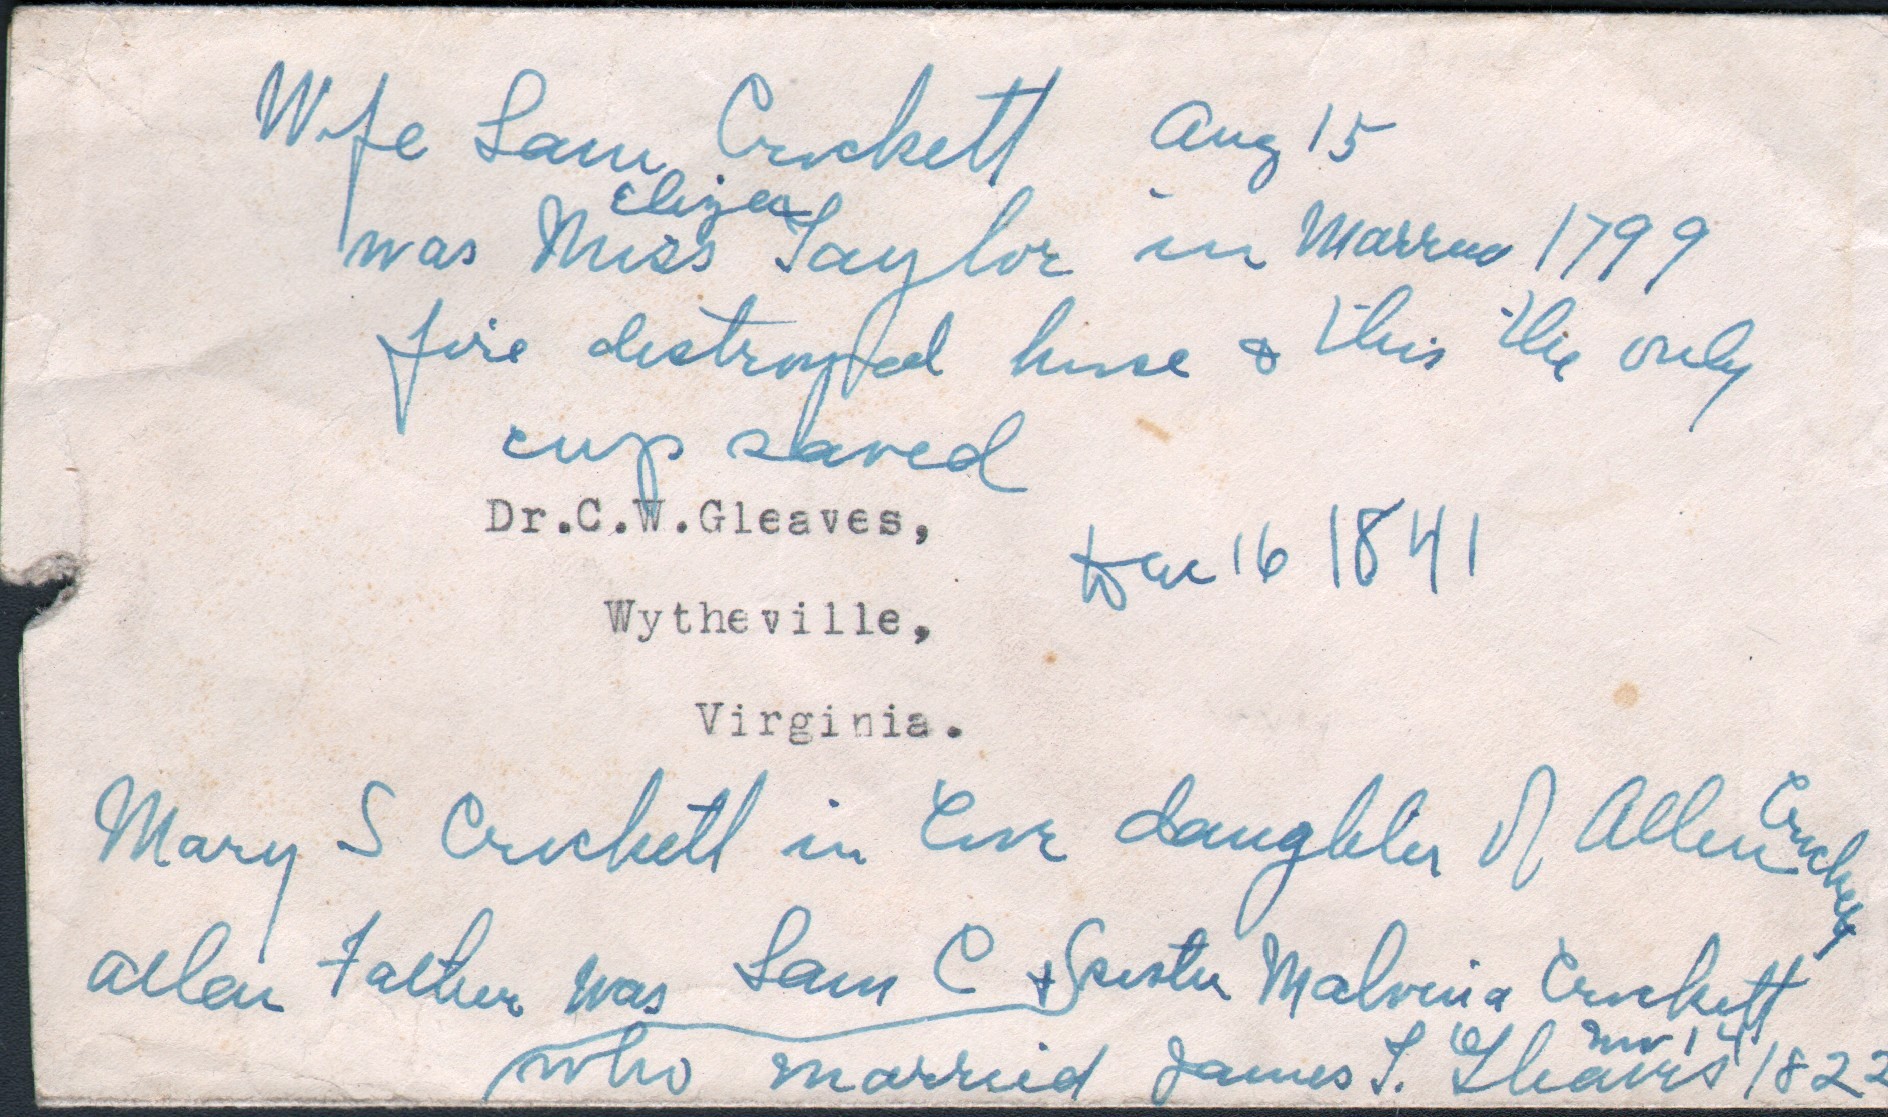 Wife Sam Crockett Aug 15
Eliza
was Miss Taylor in Married 1799
fire destroyed house & this the only
cup saved
Dr.C.W.Gleaves,
Dec 16 1841
Wytheville,
Virginia.
Mary S Crockett in daughter of Allen Crockett
Allen Father was Sam C & sister Malvina Crockett
Nov 14
who married James T. Gleaves 1822